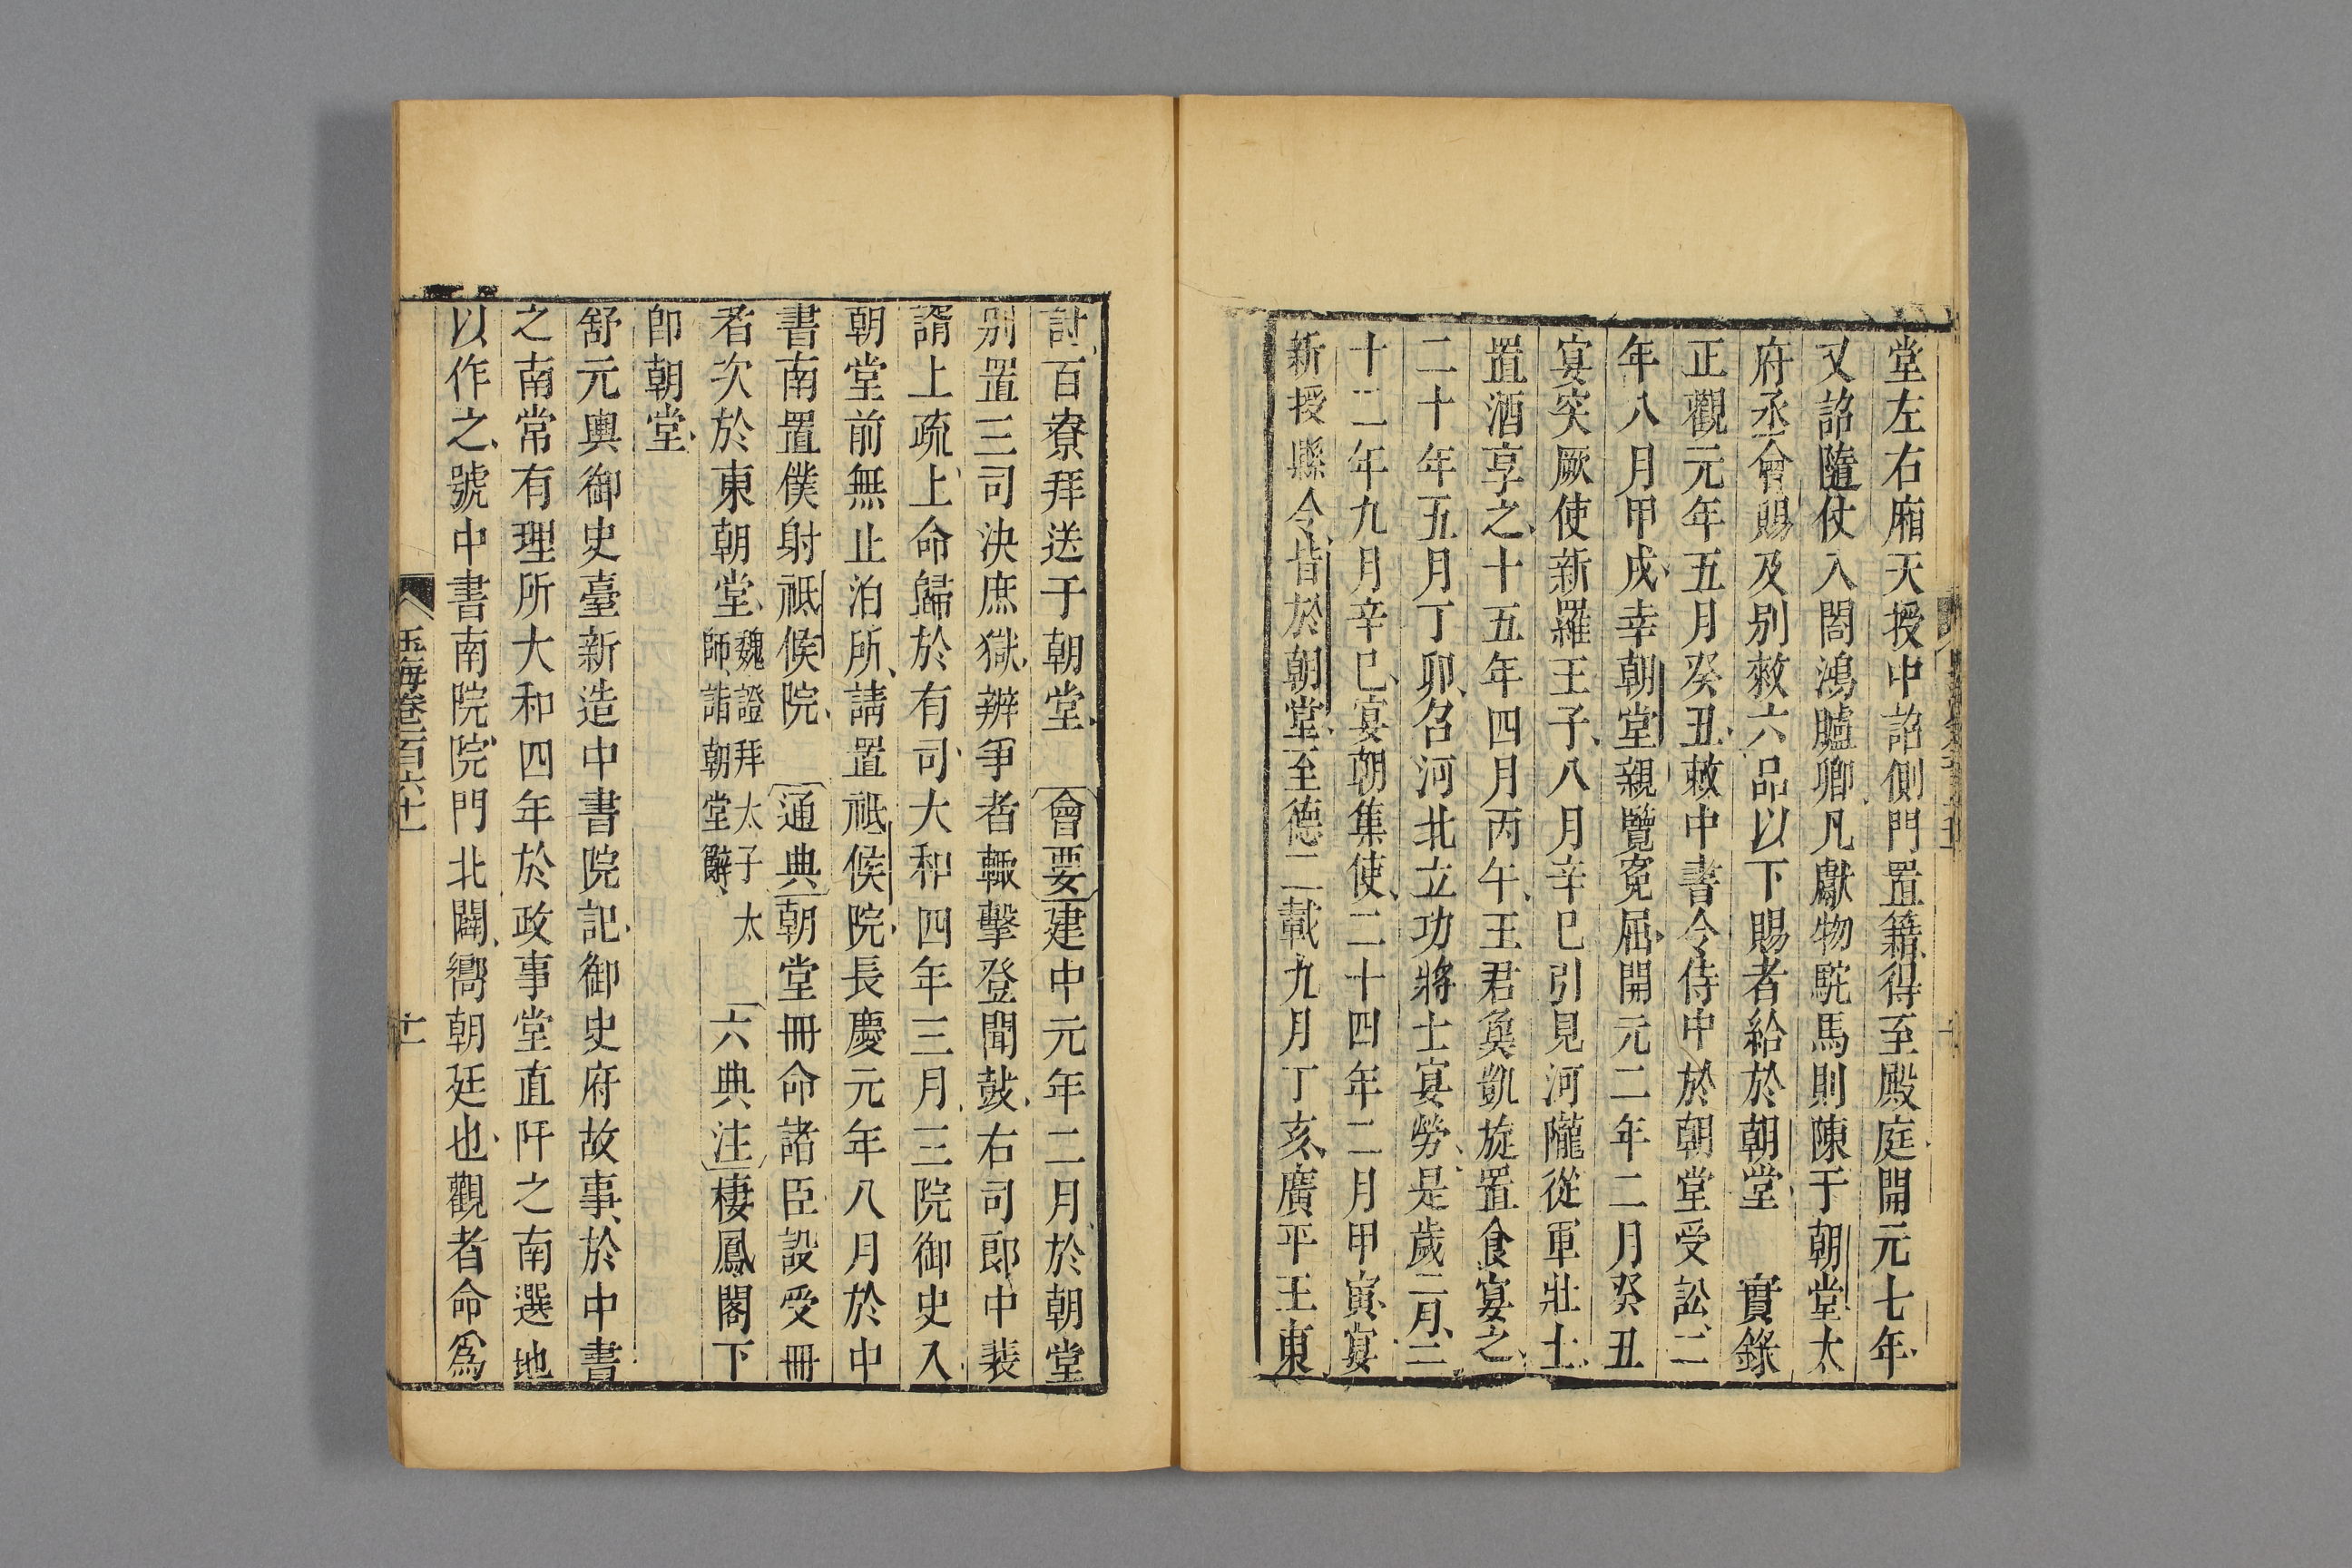 堂左右廂天授中詔側門置籍得至殿庭開元七年
又詔隨仗入閤鴻臚卿凡獻物駝馬則陳于朝堂太
府丞會賜及別敕六品以下賜者給於朝堂　實錄
正觀元年五月癸丑敕中書令侍中於朝堂受訟二
年八月甲戌幸朝堂親覽冤屈開元二年二月癸丑
宴突厥使新羅王子八月辛巳引見河隴從軍壯士
置酒享之十五年四月丙午王君㚟凱旋置食宴之
二十年五月丁卯召河北立功將士宴勞是歲二月三
十二年九月辛巳宴朝集使二十四年二月甲寅宴
新授縣令皆於朝堂至德二載九月丁亥廣平王東
討百寮拜送于朝堂　會要建中元年二月於朝堂
別置三司決庶獄辨爭者輒擊登聞鼓右司郎中裴
諝上疏上命歸於有司大和四年三月三院御史入
朝堂前無止泊所請置祗候院長慶元年八月於中
書南置僕射祗候院　通典朝堂冊命諸臣設受冊
者次於東朝堂魏證拜太子太師詣朝堂辭　六典注棲鳳閣下
卽朝堂
舒元輿御史臺新造中書院記御史府故事於中書
之南常有理所大和四年於政事堂直阡之南選地
以作之號中書南院院門北闢嚮朝廷也觀者命爲
玉海卷一百六十一
十一